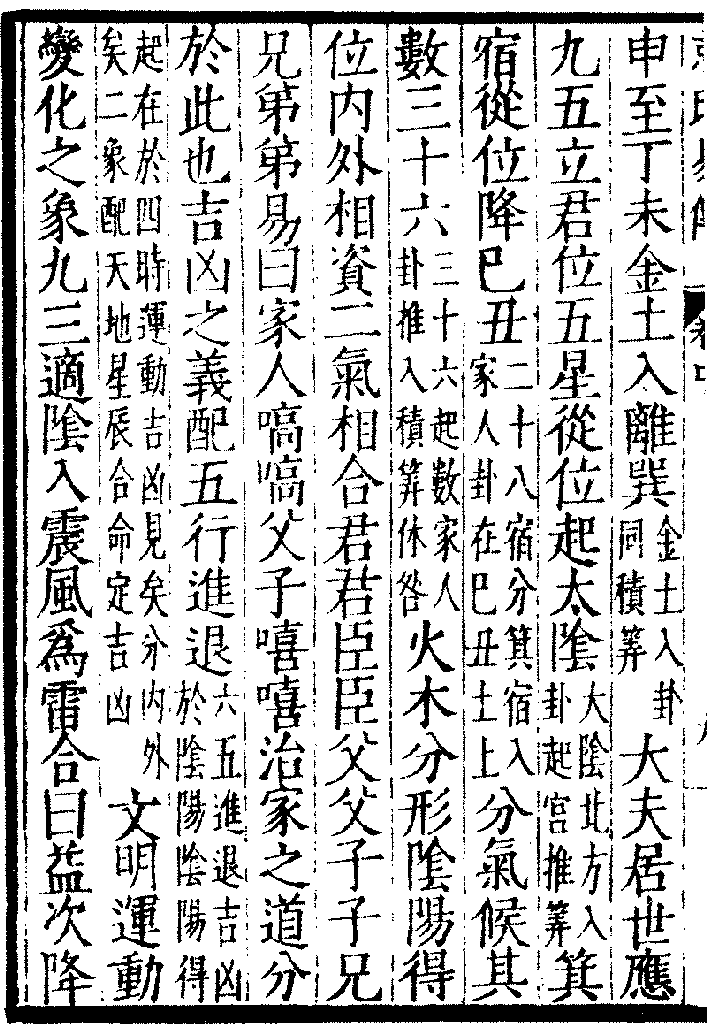 申至丁未金土入離巽金土入卦同積筭大夫居世應
九五立君位五星從位起太陰大陰北方入卦起宮推筭箕
宿從位降巳丑二十八宿分箕宿入家人卦在巳丑土上分氣候其
數三十六三十六起數家人卦推入積筭休咎火木分形陰陽得
位內外相資二氣相合君君臣臣父父子子兄
兄第第易曰家人嗃嗃父子嘻嘻治家之道分
於此也吉凶之義配五行進退六五進退吉凶於陰陽陰陽得
起在於四時運動吉凶見矣分內外矣二象配天地星辰合命定吉凶文明運動
變化之象九三適陰入震風爲雷合曰益次降